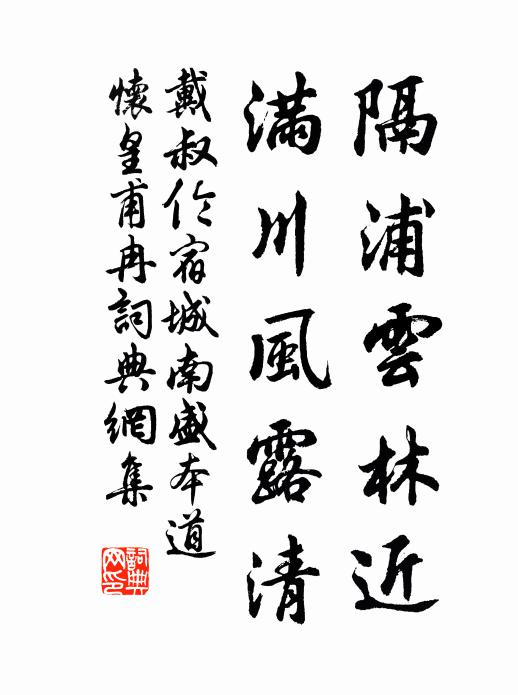 隔浦雲林近
滿川風露清
戴叔伦宿城南盛本道
懷皇甫冉詞典網集
詞典網印